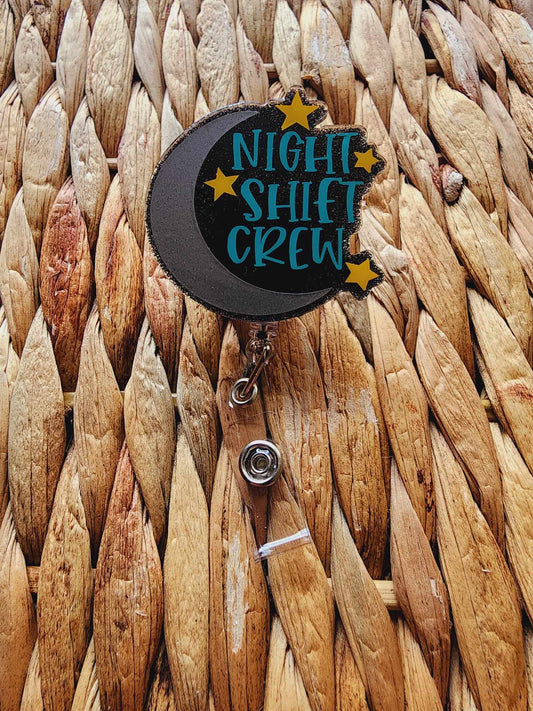 NIGHT
SHIFT
CREW